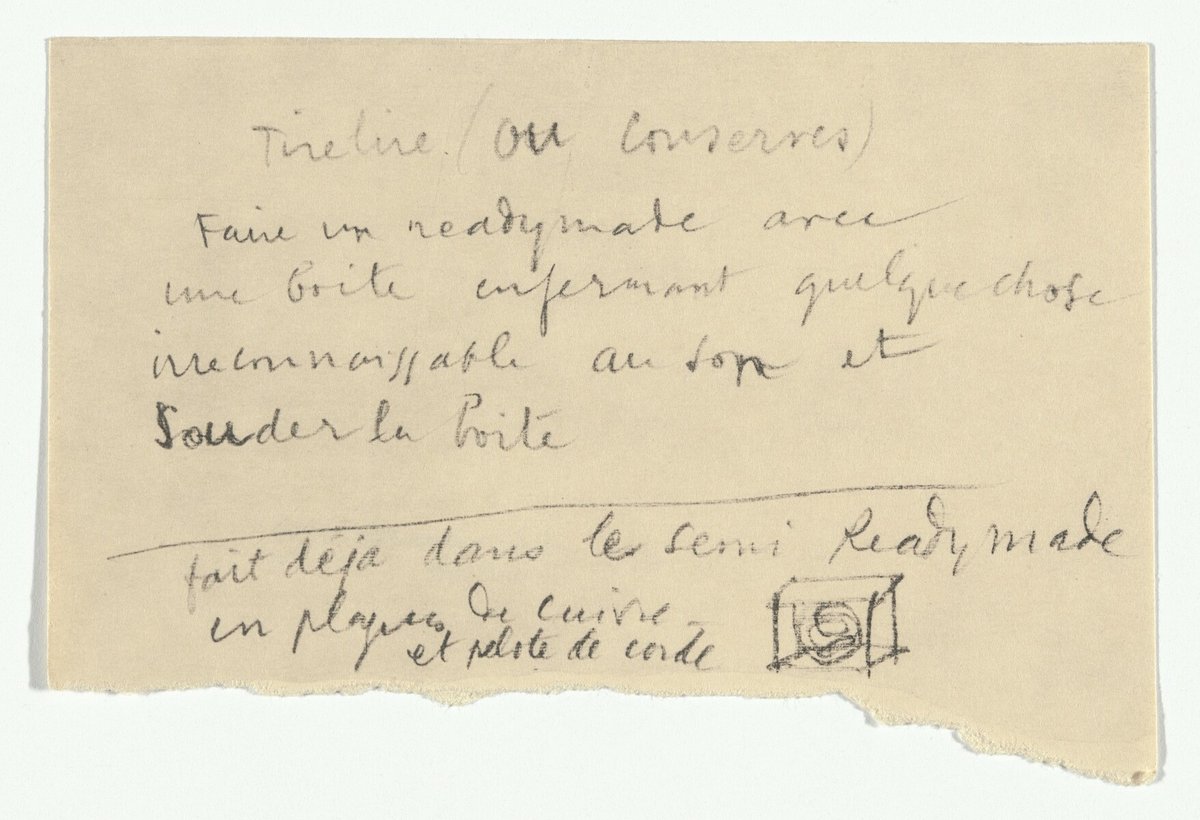 Tirelire (ou Conserves)
Faire un readymade avec
une boite enfermant quelquechose
irreconnaissable au son et
Souder la boite
fait déja dans le semi Readymade
en plaques de cuivre
et pelote de corde